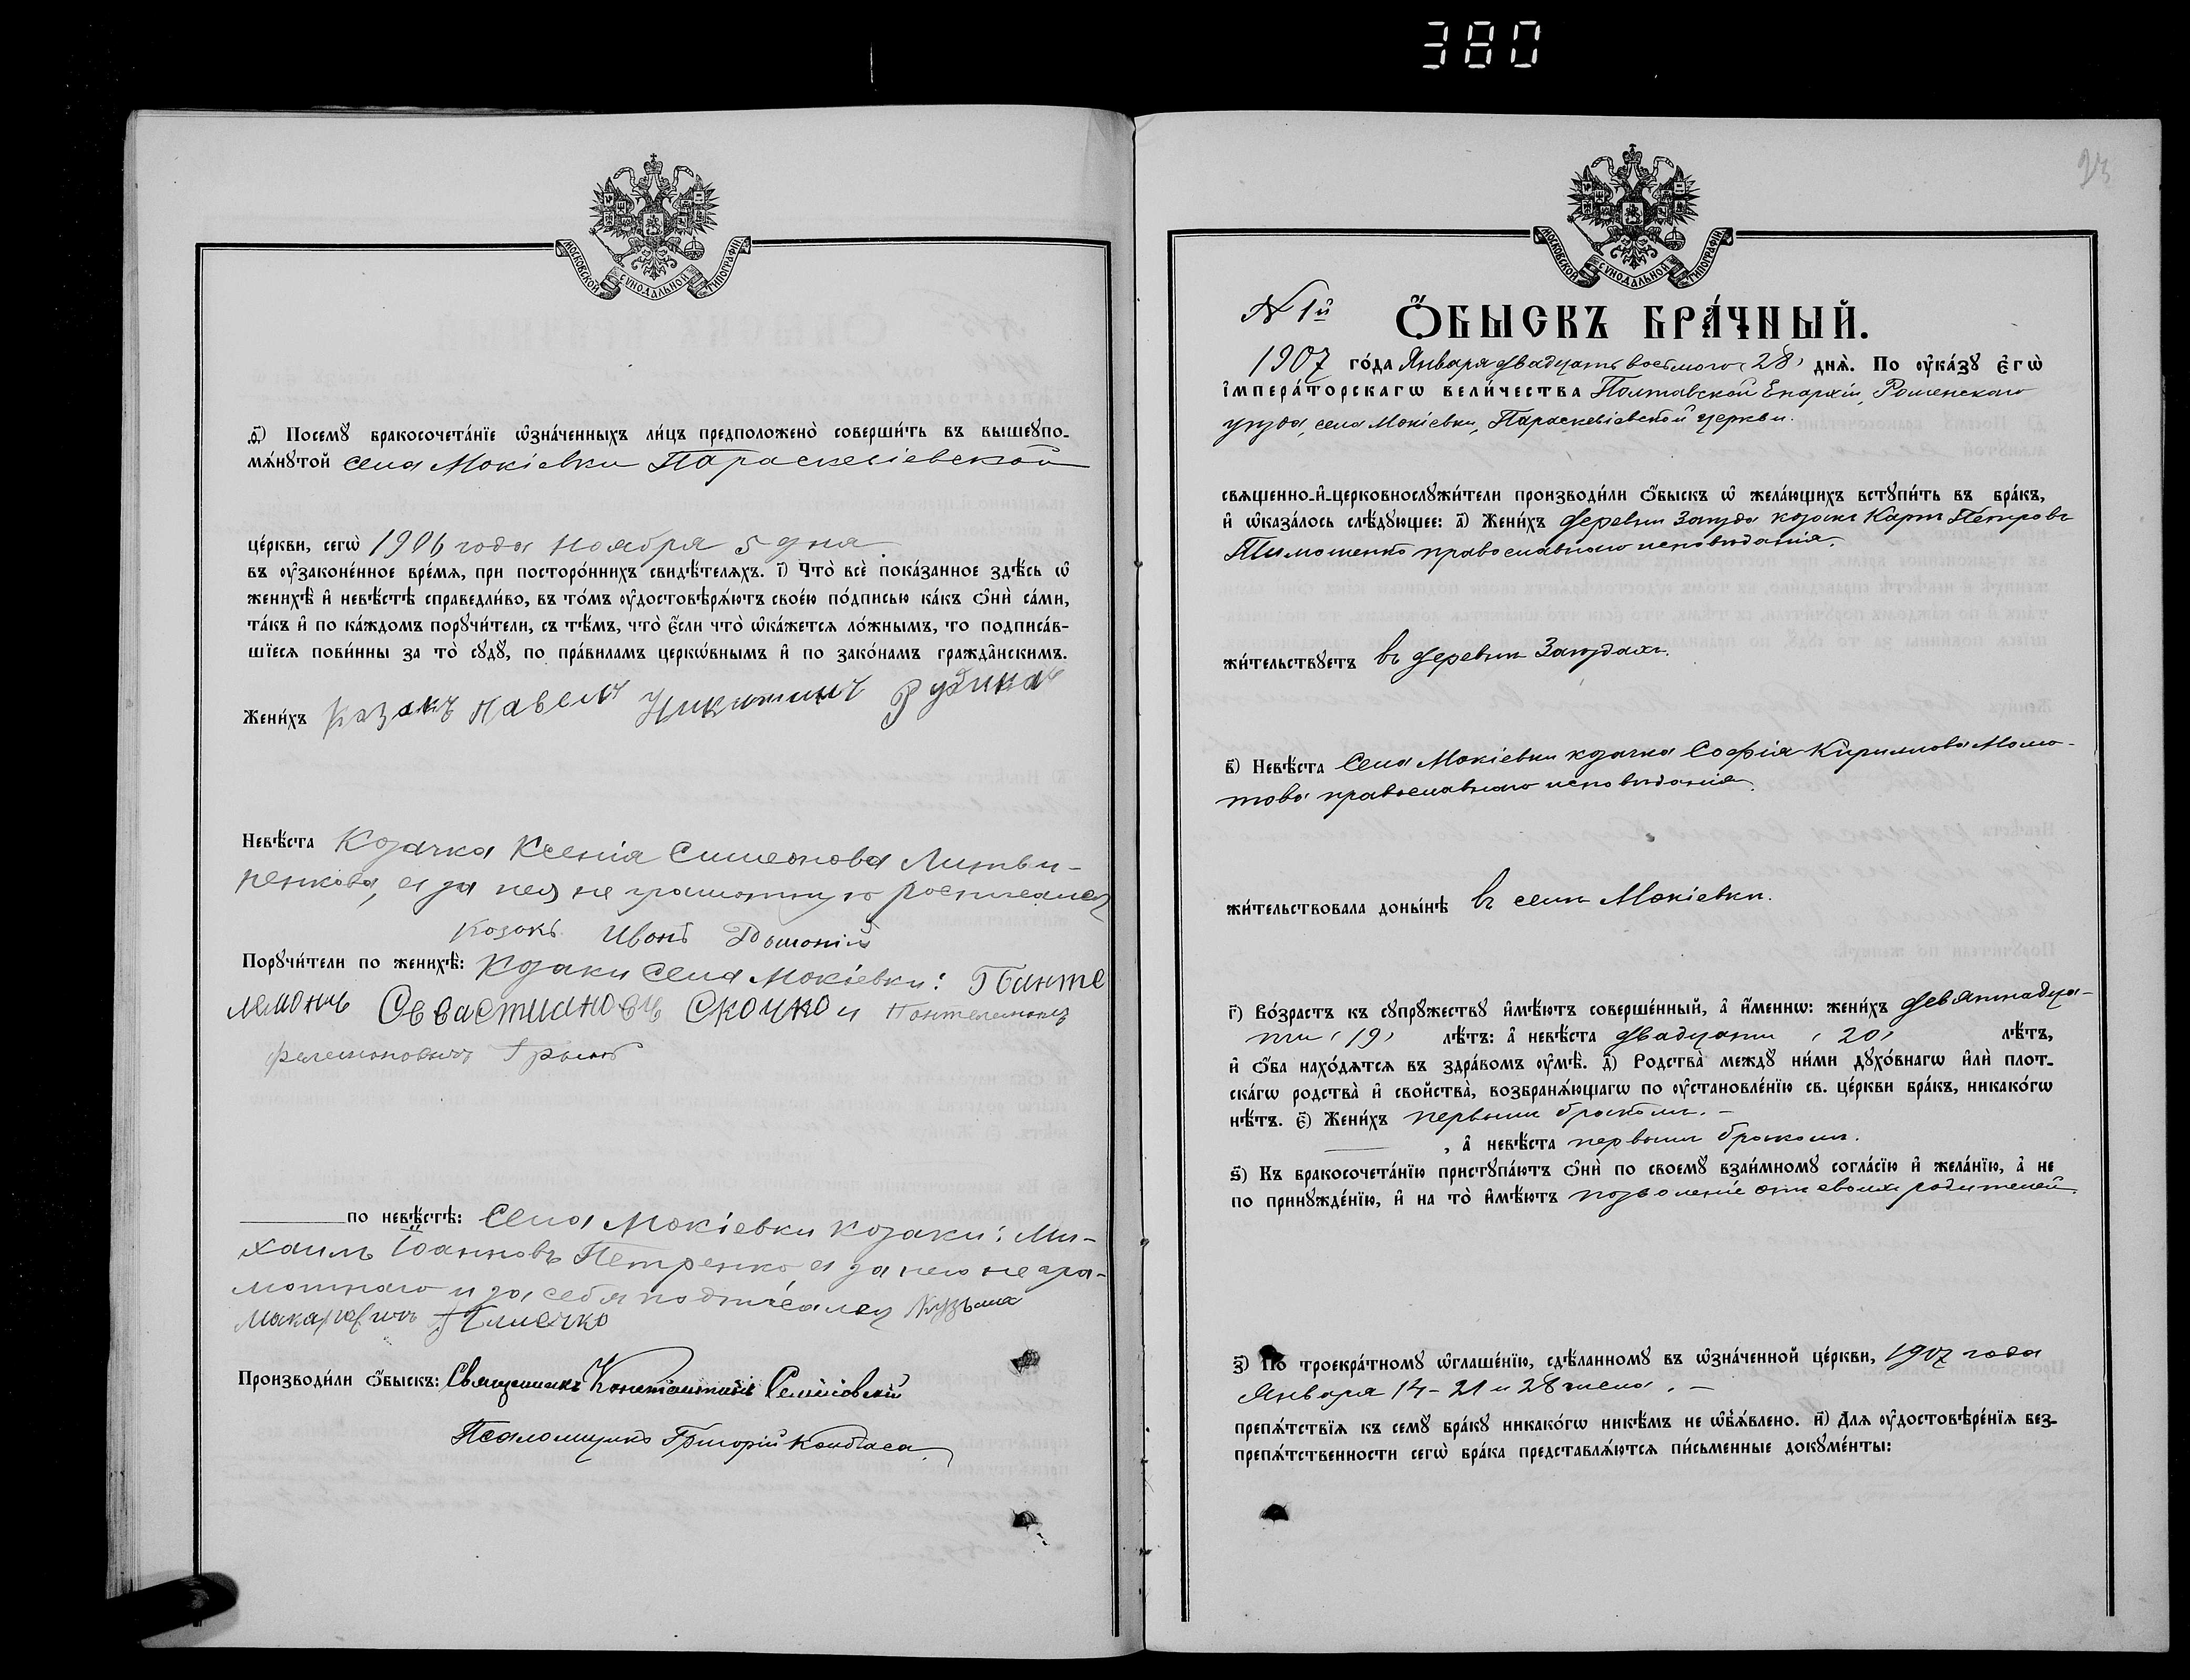 380
МОСКОВСКОЙ СѴНОДАЛЬНОЙ ТИПОГРАФІИ
ѳ҃) Посемꙋ̀ бракосочета́нїе ѡ҆зна́ченныхъ ли́цъ предположено̀ соверши́ть въ вышеꙋпо-
мѧ́нꙋтой села Мокіевки Параскевіевской
це́ркви, сегѡ̀ 1906 года Ноября 5 дня
въ ᲂу҆законе́нное вре́мѧ, при посторо́ннихъ свидѣ́телѧхъ. і҃) Что̀ всѐ пока́занное здѣ́сь ѡ҆
женихѣ̀ и҆ невѣ́стѣ справедли́во, въ то́мъ ᲂу҆достовѣрѧ́ютъ свое́ю по́дписью ка́къ ѻ҆нѝ са́ми,
та́къ и҆ по ка́ждомъ порꙋчи́тели, съ тѣ́мъ, что̀ є҆́сли что̀ ѡ҆ка́жетсѧ ло́жнымъ, то подписа́в-
шїесѧ пови́нны за то̀ сꙋдꙋ̀, по пра́виламъ церкѡ́внымъ и҆ по зако́намъ гражда̑нскимъ.
Жени́хъ Казакъ Павелъ Никитинъ Рудика
Невѣ́ста Козачка Ксенія Симеонова Литви-
ненкова, а за нея не грамотную росписался
козакъ Иванъ
Порꙋчи́тели по женихѣ̀: Козаки села Мокіевки: Панте
лемонъ Севастиановъ Скочко и Пантелемонъ
Филемоновичъ
по невѣ́стѣ: Села Мокіевки козаки: Ми-
хаилъ Іоанновъ Петренко а за него не гра-
мотнаго и за себя подписался Кузьма
Макарович
Производи́ли ѻ҆́быскъ: Священникъ Константинъ
Псаломщикъ Григорій Колбаса
23
МОСКОВСКОЙ СѴНОДАЛЬНОЙ ТИПОГРАФІИ
N 1й
Ѻ҆́БЫСКЪ БРА́ЧНЫЙ.
1907 го́да Января двадцать восьмого (28) днѧ̀. По ᲂу҆ка́зꙋ є҆гѡ̀
і҆мпера́торскагѡ вели́чества Полтавской Епархіи, Роменскаго
уѣзда, села Мокіевки, Параскевіевской церкви.
свѧщенно-и҆-церковнослꙋжи́тели производи́ли ѻ҆́быскъ ѡ҆ жела́ющихъ встꙋпи́ть въ бра́къ,
и҆ ѡ҆каза́лось слѣ́дꙋющее: а҃) Жени́хъ деревни Заѣзда козакъ Карпъ Петровъ
Тимошенко православнаго исповѣданія.
жи́тельствꙋетъ въ деревнѣ Заѣздахъ.
в҃) Невѣ́ста Села Мокіевки козачка Софія Кирилова Моло-
това православнаго исповѣданія.
жи́тельствовала доны́нѣ въ селѣ Мокіевки.
г҃) Во́зрастъ къ сꙋпрꙋ́жествꙋ и҆мѣ́ютъ соверше́нный, а҆ и҆́меннѡ: жени́хъ девятнадца-
ти (19) лѣ́тъ: а҆ невѣ́ста двадцати (20) лѣ́тъ,
и҆ ѻ҆́ба нахо́дѧтсѧ въ здра́вомъ ᲂу҆мѣ̀. д҃) Родства̀ междꙋ̀ ни́ми дꙋхо́внагѡ и҆лѝ плот-
ска́гѡ родства̀ и҆ сво́йства, возбранѧ́ющагѡ по ᲂу҆становле́нїю св. це́ркви бра́къ, никако́гѡ
нѣ́тъ. є҃) Жени́хъ первымъ бракомъ. –
, а҆ невѣ́ста первымъ бракомъ.
ѕ҃) Къ бракосочета́нїю пристꙋпа́ютъ ѻ҆нѝ по своемꙋ̀ взаи́мномꙋ согла́сїю и҆ жела́нїю, а҆ не
по принꙋжде́нїю, и҆ на то̀ и҆мѣ́ютъ позволеніе отъ своихъ родителей
з҃) По троекра́тномꙋ ѡ҆глаше́нїю, сдѣ́ланномꙋ въ ѡ҆зна́ченной це́ркви, 1907 года
Января 14 – 21 и 28 чиселъ. –
препѧ́тствїѧ къ семꙋ̀ бра́кꙋ никако́гѡ никѣ́мъ не ѡ҆б̾ѧ́влено. и҃) Длѧ ᲂу҆достовѣре́нїѧ без-
препѧ́тственности сегѡ̀ бра́ка представлѧ́ютсѧ пи́сьменные докꙋме́нты: